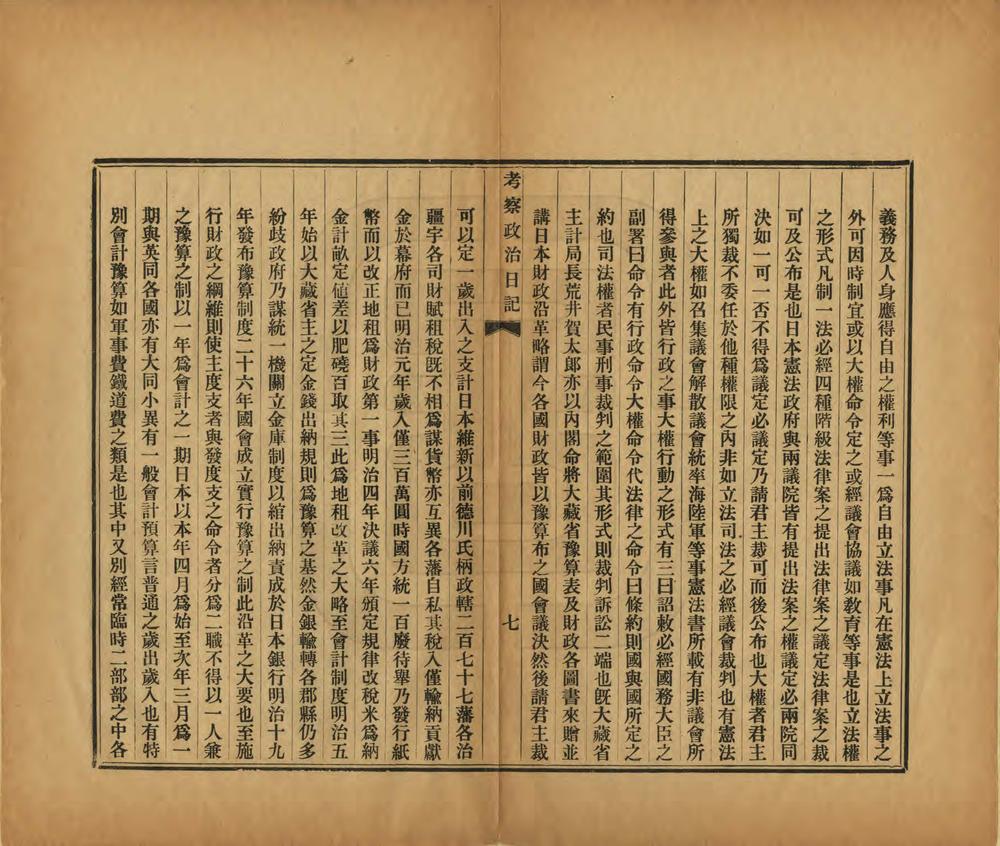 義務及人身應得自由之權利等事一爲自由立法事凡在憲法上立法事之
外可因時制宜或以大權命令定之或經議會協議如敎育等事是也立法權
之形式凡制一法必經四種階級法律案之提出法律案之議定法律案之裁
可及公布是也日本憲法政府與兩議院皆有提出法案之權議定必兩院同
決如一可一否不得爲議定必議定乃請君主裁可而後公布也大權者君主
所獨裁不委任於他種權限之內非如立法司法之必經議會裁判也有憲法
上之大權如召集議會解散議會統率海陸軍等事憲法書所載有非議會所
得參與者此外皆行政之事大權行動之形式有三曰詔敕必經國務大臣之
副署曰命令有行政命令大權命令代法律之命令曰條約則國與國所定之
約也司法權者民事刑事裁判之範圍其形式則裁判訴訟二端也旣大藏省
主計局長荒井賀太郞亦以內閣命將大藏省豫算表及財政各圖書來贈並
講日本財政沿革略謂今各國財政皆以豫算布之國會議決然後請君主裁
考察政治日記
七
可以定一歲出入之支計日本維新以前德川氏柄政轄二百七十七藩各治
疆宇各司財賦租稅旣不相爲謀貨幣亦互異各藩自私其稅入僅輸納貢獻
金於幕府而已明治元年歲入僅三百萬圓時國方統一百廢待舉乃發行紙
幣而以改正地租爲財政第一事明治四年決議六年頒定規律改稅米爲納
金計畝定値差以肥磽百取其三此爲地租改革之大略至會計制度明治五
年始以大藏省主之定金錢出納規則爲豫算之基然金銀輸轉各郡縣仍多
紛歧政府乃謀統一機關立金庫制度以綰出納責成於日本銀行明治十九
年發布豫算制度二十六年國會成立實行豫算之制此沿革之大要也至施
行財政之綱維則使主度支者與發度支之命令者分爲二職不得以一人兼
之豫算之制以一年爲會計之一期日本以本年四月爲始至次年三月爲一
期與英同各國亦有大同小異有一般會計預算言普通之歲出歲入也有特
別會計豫算如軍事費鐵道費之類是也其中又別經常臨時二部部之中各